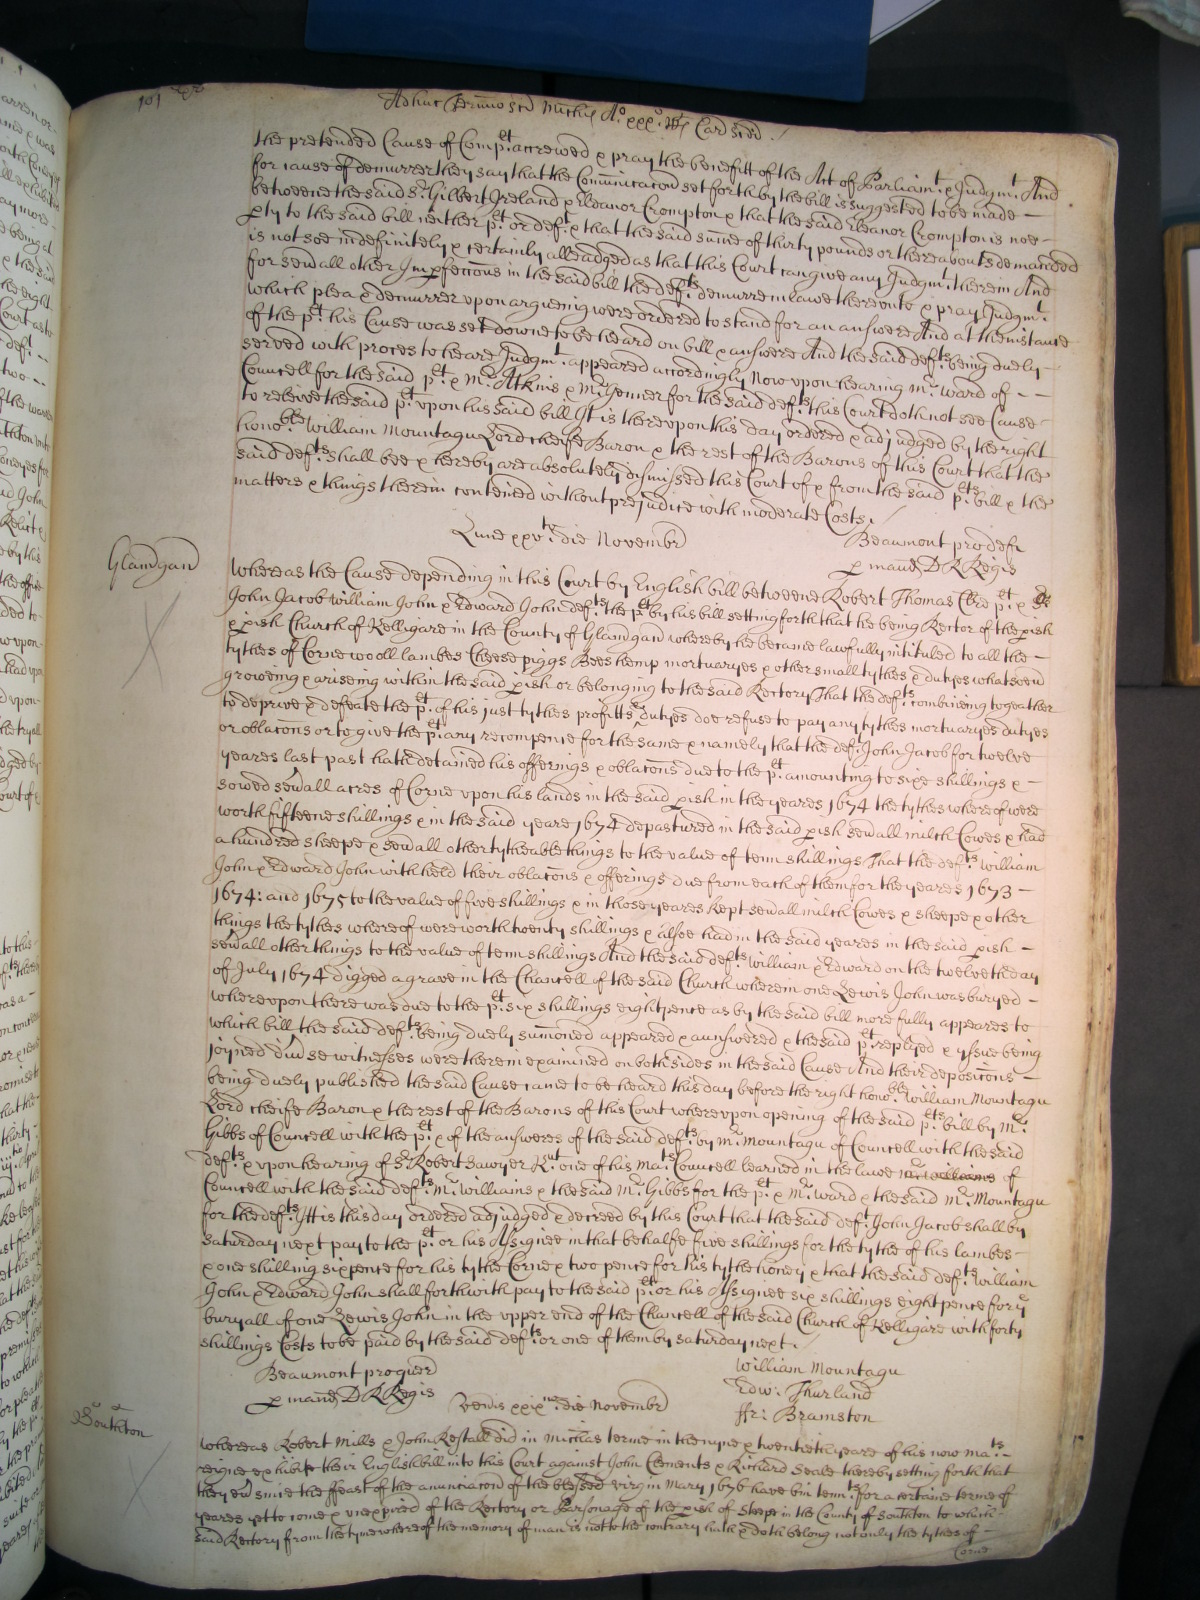 101
Adhuc Termino Sci Mich's Ao xxx.o R's Car' scdi.
the pretended Cause of Comp.lt accrewed & pray the benefitt of the Act of Parliam.t & Judgm.t And
for cause of demurrer they say that the Communicac̄on set forth by the bill is suggested to be made
betweene the said S.r Gilbert Ireland & Eleanor Crompton & that the said Eleanor Crompton is noe
p̱ty to the said bill neither p.lt or def.t & that the said sum̄e of thirty pounds or thereabouts demanded
is not soe indefinitely & certainly alleadged as that this Court can give any Judgm.t therein And
for sev̄all other Imp̱fecc̄ons in the said bill the def.ts demurre in lawe thereunto & pray Judgm.t
which plea & demurrer upon argueing were ordered to stand for an answere And at the instance
of the p.lt his Cause was set downe to be heard on bill & answere And the said def.ts being duely
served with proces to heare Judgm.t appeared accordingly Now upon hearing M.r Ward of
Councell for the said p.lt & M.r Atkins & M.r Jenner for the said def.ts this Court doth not see Cause
to releive the said p.lt upon his said bill It is thereupon this day ordered & adjudged by the right
hono.ble William Mountagu Lord cheife Baron & the rest of the Barons of this Court that the
said def.ts shall bee & hereby are absolutely dismissed this Court of & from the said p.lts bill & the
matters & things therein conteined without prejudice with moderate Costs.
Lune xxv.to die Novembr'
Beaumont pro def'
p̱ mand' D R Regis
Glamgan
Whereas the Cause depending in this Court by English bill betweene Robert Thomas Clre p.lt &
John Jacob William John & Edward John def.ts the p.lt by his bill setting forth that he being Rector of the p̱ish
& p̱ish Church of Kelligare in the County of Glamgan whereby he became lawfully intituled to all the
tythes of Corne wooll lambes Cheese piggs Bees hemp mortuaryes & other small tythes & dutyes whatsoev̄
groweing & ariseing within the said p̱ish or belonging to the said Rectory That the def.ts combineing togeather
to deprive & defeate the p.lt of his just tythes profitts & dutyes doe refuse to pay any tythes mortuaryes dutyes
or oblac̄ons or to give the p.lt any recompence for the same & namely that the def.t John Jacob for twelve
yeares last past hath detained his offerings & oblac̄ons due to the p.lt amounting to sixe shillings &
sowed sev̄all acres of Corne upon his lands in the said p̱ish in the yeares 1674 the tythes whereof were
worth fifteene shillings & in the said yeare 1674 depastured in the said p̱ish sev̄all milch Cowes & had
a hundred sheepe & sev̄all other tytheable things to the value of tenn shillings That the def.ts William
John & Edward John withheld their oblac̄ons & offerings due from each of them for the yeares 1673
1674: and 1675 to the value of five shillings & in those yeares kept sev̄all milch Cowes & sheepe & other
things the tythes whereof were worth twenty shillings & alsoe had in the said yeares in the said p̱ish
sev̄all other things to the value of tenn shillings And the said def.ts William & Edward on the twelveth day
of July 1674 digged a grave in the Chancell of the said Church wherein one Lewis John was buryed
whereupon there was due to the p.lt six shillings eight pence as by the said bill more fully appeares to
which bill the said def.ts being duely sum̄oned appeared & answered & the said p.lt replyed & yssue being
joyned div̄se witnesses were therein examined on both sides in the said Cause And their deposic̄ons
being duely published the said Cause came to be heard this day before the right hono.ble William Mountagu
Lord cheife Baron & the rest of the Barons of this Court whereupon opening of the said p.lts bill by M.r
Gibbs of Councell with the p.lt & of the answeres of the said def.ts by M.r Mountagu of Councell with the said
def.ts & upon hearing of S.r Robert Sawyer K.nt one of his Ma.ts Councell learned in the lawe Mr Williams of
Councell with the said def.ts M.r Williams & the said M.r Gibbs for the p.lt & M.r Ward & the said M.r Mountagu
for the def.ts It is this day ordered adjudged & decreed by this Court that the said def.t John Jacob shall by
Saturday next pay to the p.lt or his Assignee in that behalfe five shillings for the tythe of his lambes
& one shilling sixpence for his tythe Corne & two pence for his tythe honey & that the said def.ts William
John & Edward John shall forthwith pay to the said p.lt or his Assignee six shillings eight pence for y.e
buryall of one Lewis John in the upper end of the Chancell of the said Church of Kelligare with forty
shillings Costs to be paid by the said def.ts or one of them by Saturday next.
Beaumont pro quer'
p̱ mand' D R Regis
William Mountagu
Edw: Thurland
ffr: Bramston
Ven'is xxix.no die Novembr'
Southton
Whereas Robert Mills & John Restall did in Mich'as terme in the nyne & twentieth yeare of his now Ma.ts
reigne exhibite their English bill into this Court against John Clements & Richard Seale thereby setting forth that
they ev̄ since the ffeast of the anunciac̄on of the blessed virgin Mary 1676 have bin tenn.ts for a certaine terme of
yeares yett to come & unexpired of the Rectory or Parsonage of the p̱ish of Steepe in the County of Southton to which
said Rectory from the tyme whereof the memory of man is not to the contrary hath & doth belong not only the tythes of
Corne